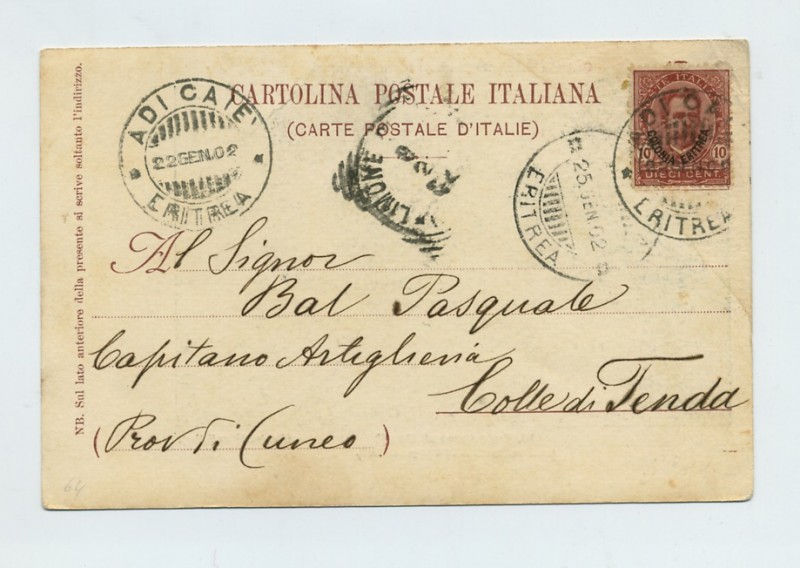 CARTOLINA POSTALE ITALIANA
(CARTE POSTALE D'ITALIE)
ADI CAIE
22 GEN. 02
ERITREA
LIMONE
25 GEN 02
ERITREA
COLONIA ERITREA
10 10
DIECI CENT.
ERITREA
NB. Sul lato anteriore della presente si scrive soltanto l'indirizzo.
Al Signor
Bal Pasquale
Capitano Artiglieria
Colle di Tenda
(Prov di Cuneo)
64